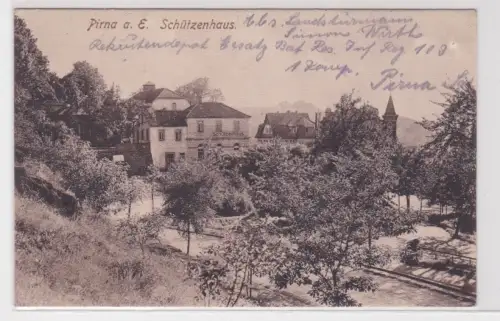 Pirna a. E. Schützenhaus.
Abs. Landsturmmann
Simone Wirths
Rekrutendepot Ersatz Bat Res. Inf Reg
1 Komp.
Pirna